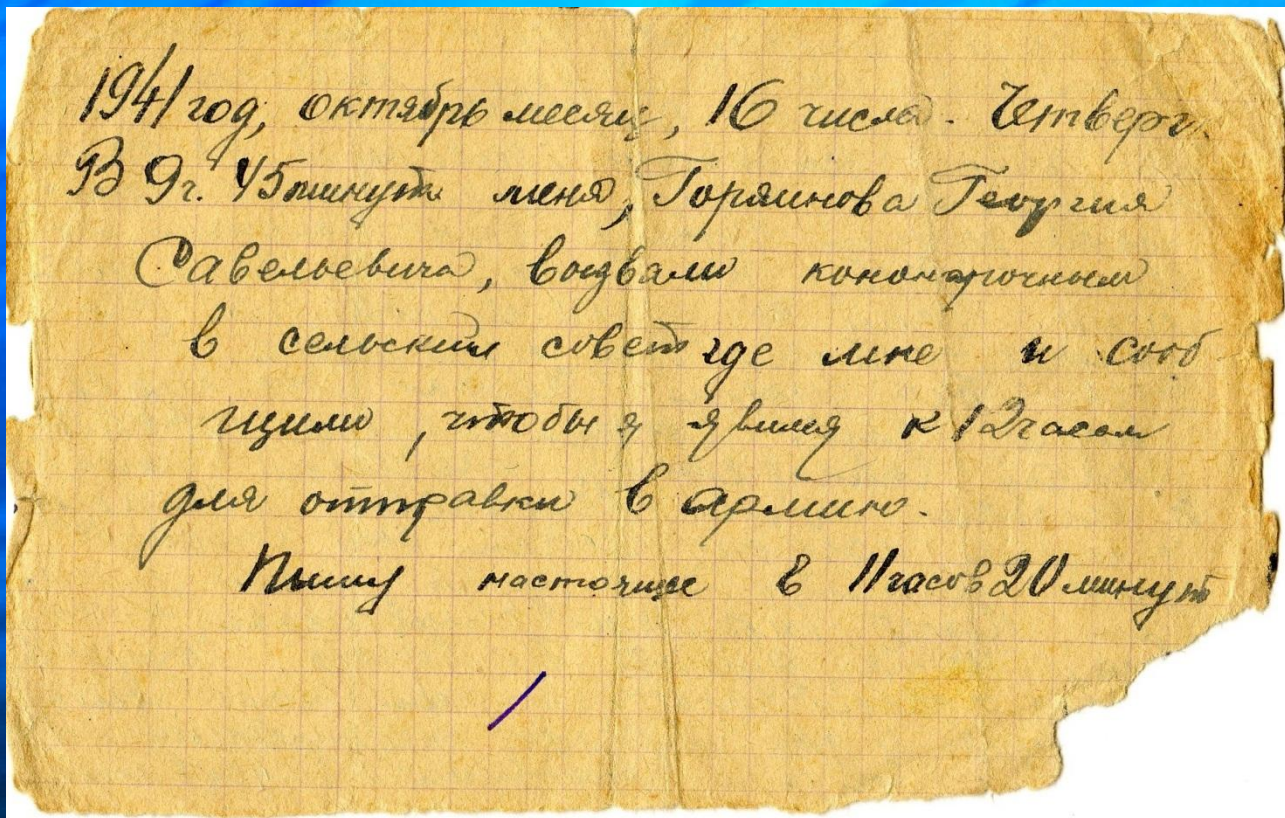 1941 год, октябрь месяц, 16 числа. Четверг.
В 9 г. 45 минут меня, Горяинова Георгия
Савельевича, вызвали
в сельский совет где мне и сооб
щили, чтобы я явился к 12 часам
для отправки в армию.
Пишу настоящее в 11 часов 20 минут